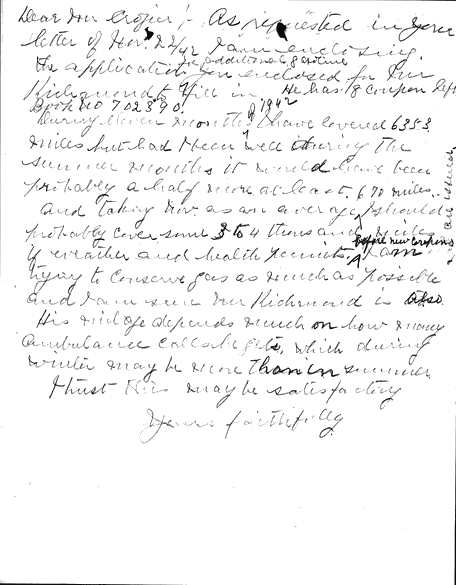 Dear Mr Crozier :- As requested in your
letter of Nov. 22/42 I am enclosing
The application re additional gasoline
you enclosed for Mr
Richmond to fill in. He has 18 coupon left
Book No 702390.
During eleven months of 1942 I have covered 6353
miles but had I been well during the
summer months it would have been
probably a half more at least. 670 miles
and taking Nov as an average I should
probably cover some 3 to 4 thousand miles before new coupons
are issued.
if weather and health permits. I am
trying to conserve gas as much as possible
and I am sure Mr Richmond is also.
His mileage depends much on how many
ambulance calls he gets, which during
winter may be more than in summer
I trust this may be satisfactory
Yours faithfully